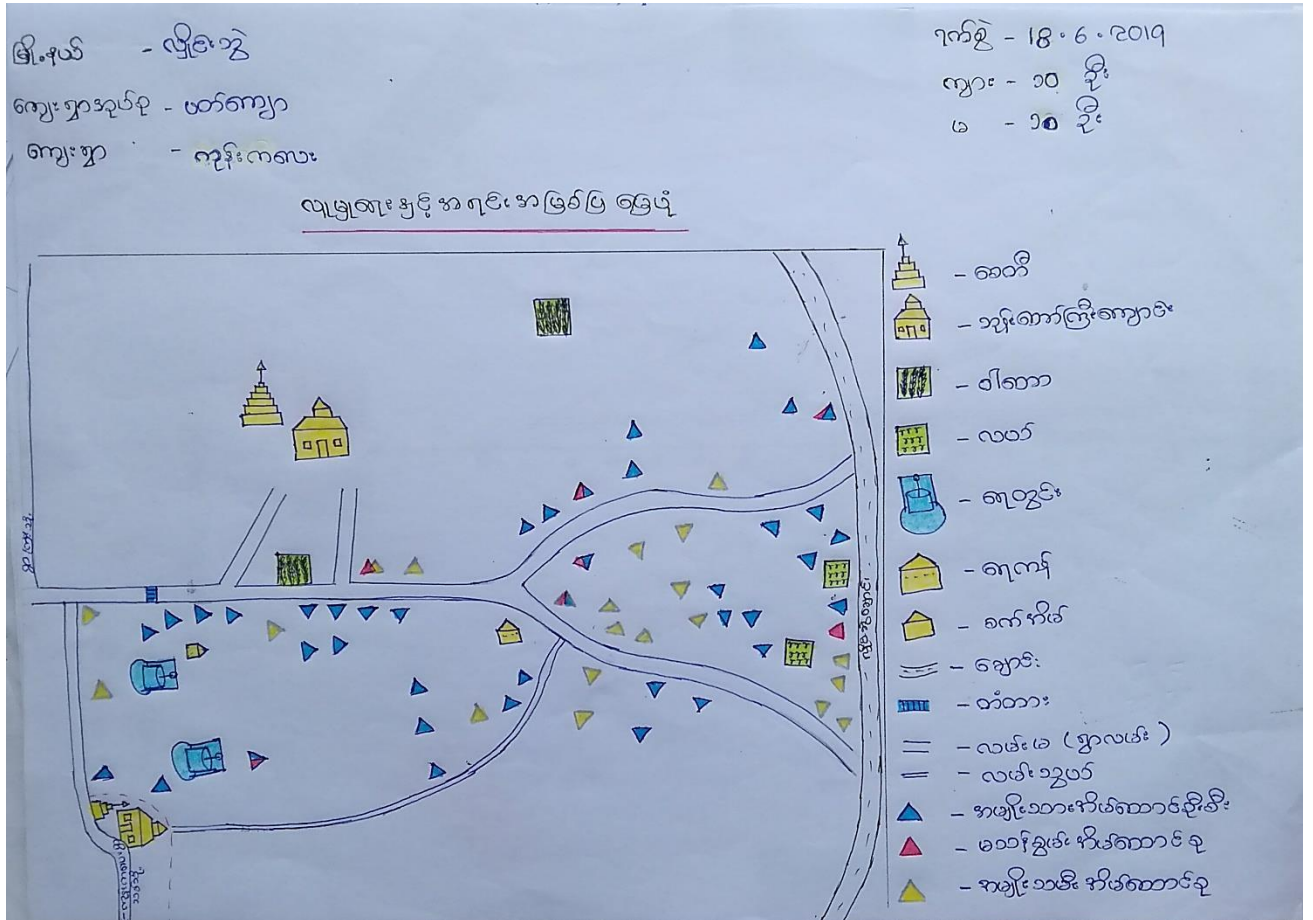 မြို့နယ် - လှိုင်းဘွဲ
ကျေးရွာအုပ်စု - ဖတ်ကျော
ကျေးရွာ - ကုန်းကလေး
ရက်စွဲ - 18.6.2019
ကျား - ၁၀ ဦး
မ - ၁၀ ဦး
လူမှုရေးနှင့်အရင်းအမြစ်ပြမြေပုံ
- စေတီ
- ဘုန်းတော်ကြီးကျောင်း
- ဝါတော
- လယ်
- ရေတွင်း
- ရေကန်
- စက်အိမ်
- ချောင်း
- တံတား
- လမ်းမ (ရွာလမ်း)
- လမ်းသွယ်
- အမျိုးသားအိမ်ထောင်ဦးစီး
- မသန်စွမ်းအိမ်ထောင်စု
- အမျိုးသမီးအိမ်ထောင်စု